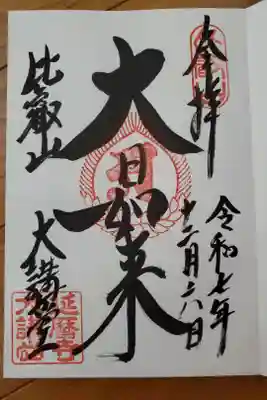 奉拝
令和七年
十二月六日
大日如来
比叡山
大講堂
延暦寺
大講堂